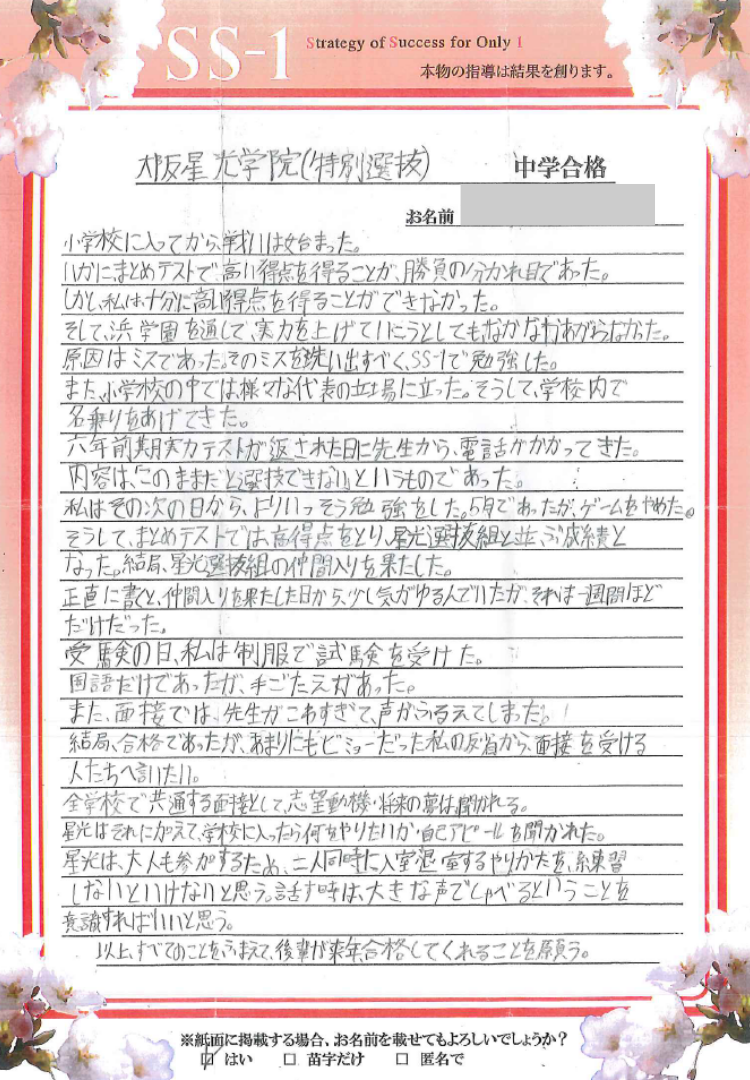 SS-1
Strategy of Success for Only 1
本物の指導は結果を創ります。
大阪星光学院(特別選抜) 中学合格
お名前
小学校に入ってから、戦いは始まった。
いかにまとめテストで高い得点を得ることが、勝負の分かれ目であった。
しかし、私は十分に高い得点を得ることができなかった。
そして、浜学園を通して、実力を上げていこうとしても、なかなかあがらなかった。
原因はミスであった。そのミスを洗い出すべく、SS-1で勉強した。
また、小学校の中では、様々な代表の立場に立った。そうして、学校内で
名乗りをあげてきた。
六年前期実力テストが返された日に先生から、電話がかかってきた。
内容は、「このままだと選抜できない」というものであった。
私はその次の日から、よりいっそう勉強をした。5月であったが、ゲームをやめた。
そうして、まとめテストでは高得点をとり、星光選抜組と並ぶ成績と
なった。結局、星光選抜組の仲間入りを果たした。
正直に書くと、仲間入りを果たした日から、少し気がゆるんでいたが、それは一週間ほど
だけだった。
受験の日、私は制服で試験を受けた。
国語だけであったが、手ごたえがあった。
また、面接では、先生がこわすぎて、声がふるえてしまった。
結局、合格であったが、あまりにもビミョーだった私の反省から、面接を受ける
人たちへ言いたい。
全学校で共通する面接として、志望動機・将来の夢は聞かれる。
星光はそれに加えて、学校に入ったら何をやりたいか・自己アピールを聞かれた。
星光は、大人も参加するため、二人同時に入室退室するやりかたを、練習
しないといけないと思う。話す時は、大きな声でしゃべるということを
意識すればいいと思う。
以上、すべてのことをふまえて、後輩が来年合格してくれることを願う。
※紙面に掲載する場合、お名前を載せてもよろしいでしょうか？
☑ はい □ 苗字だけ □ 匿名で